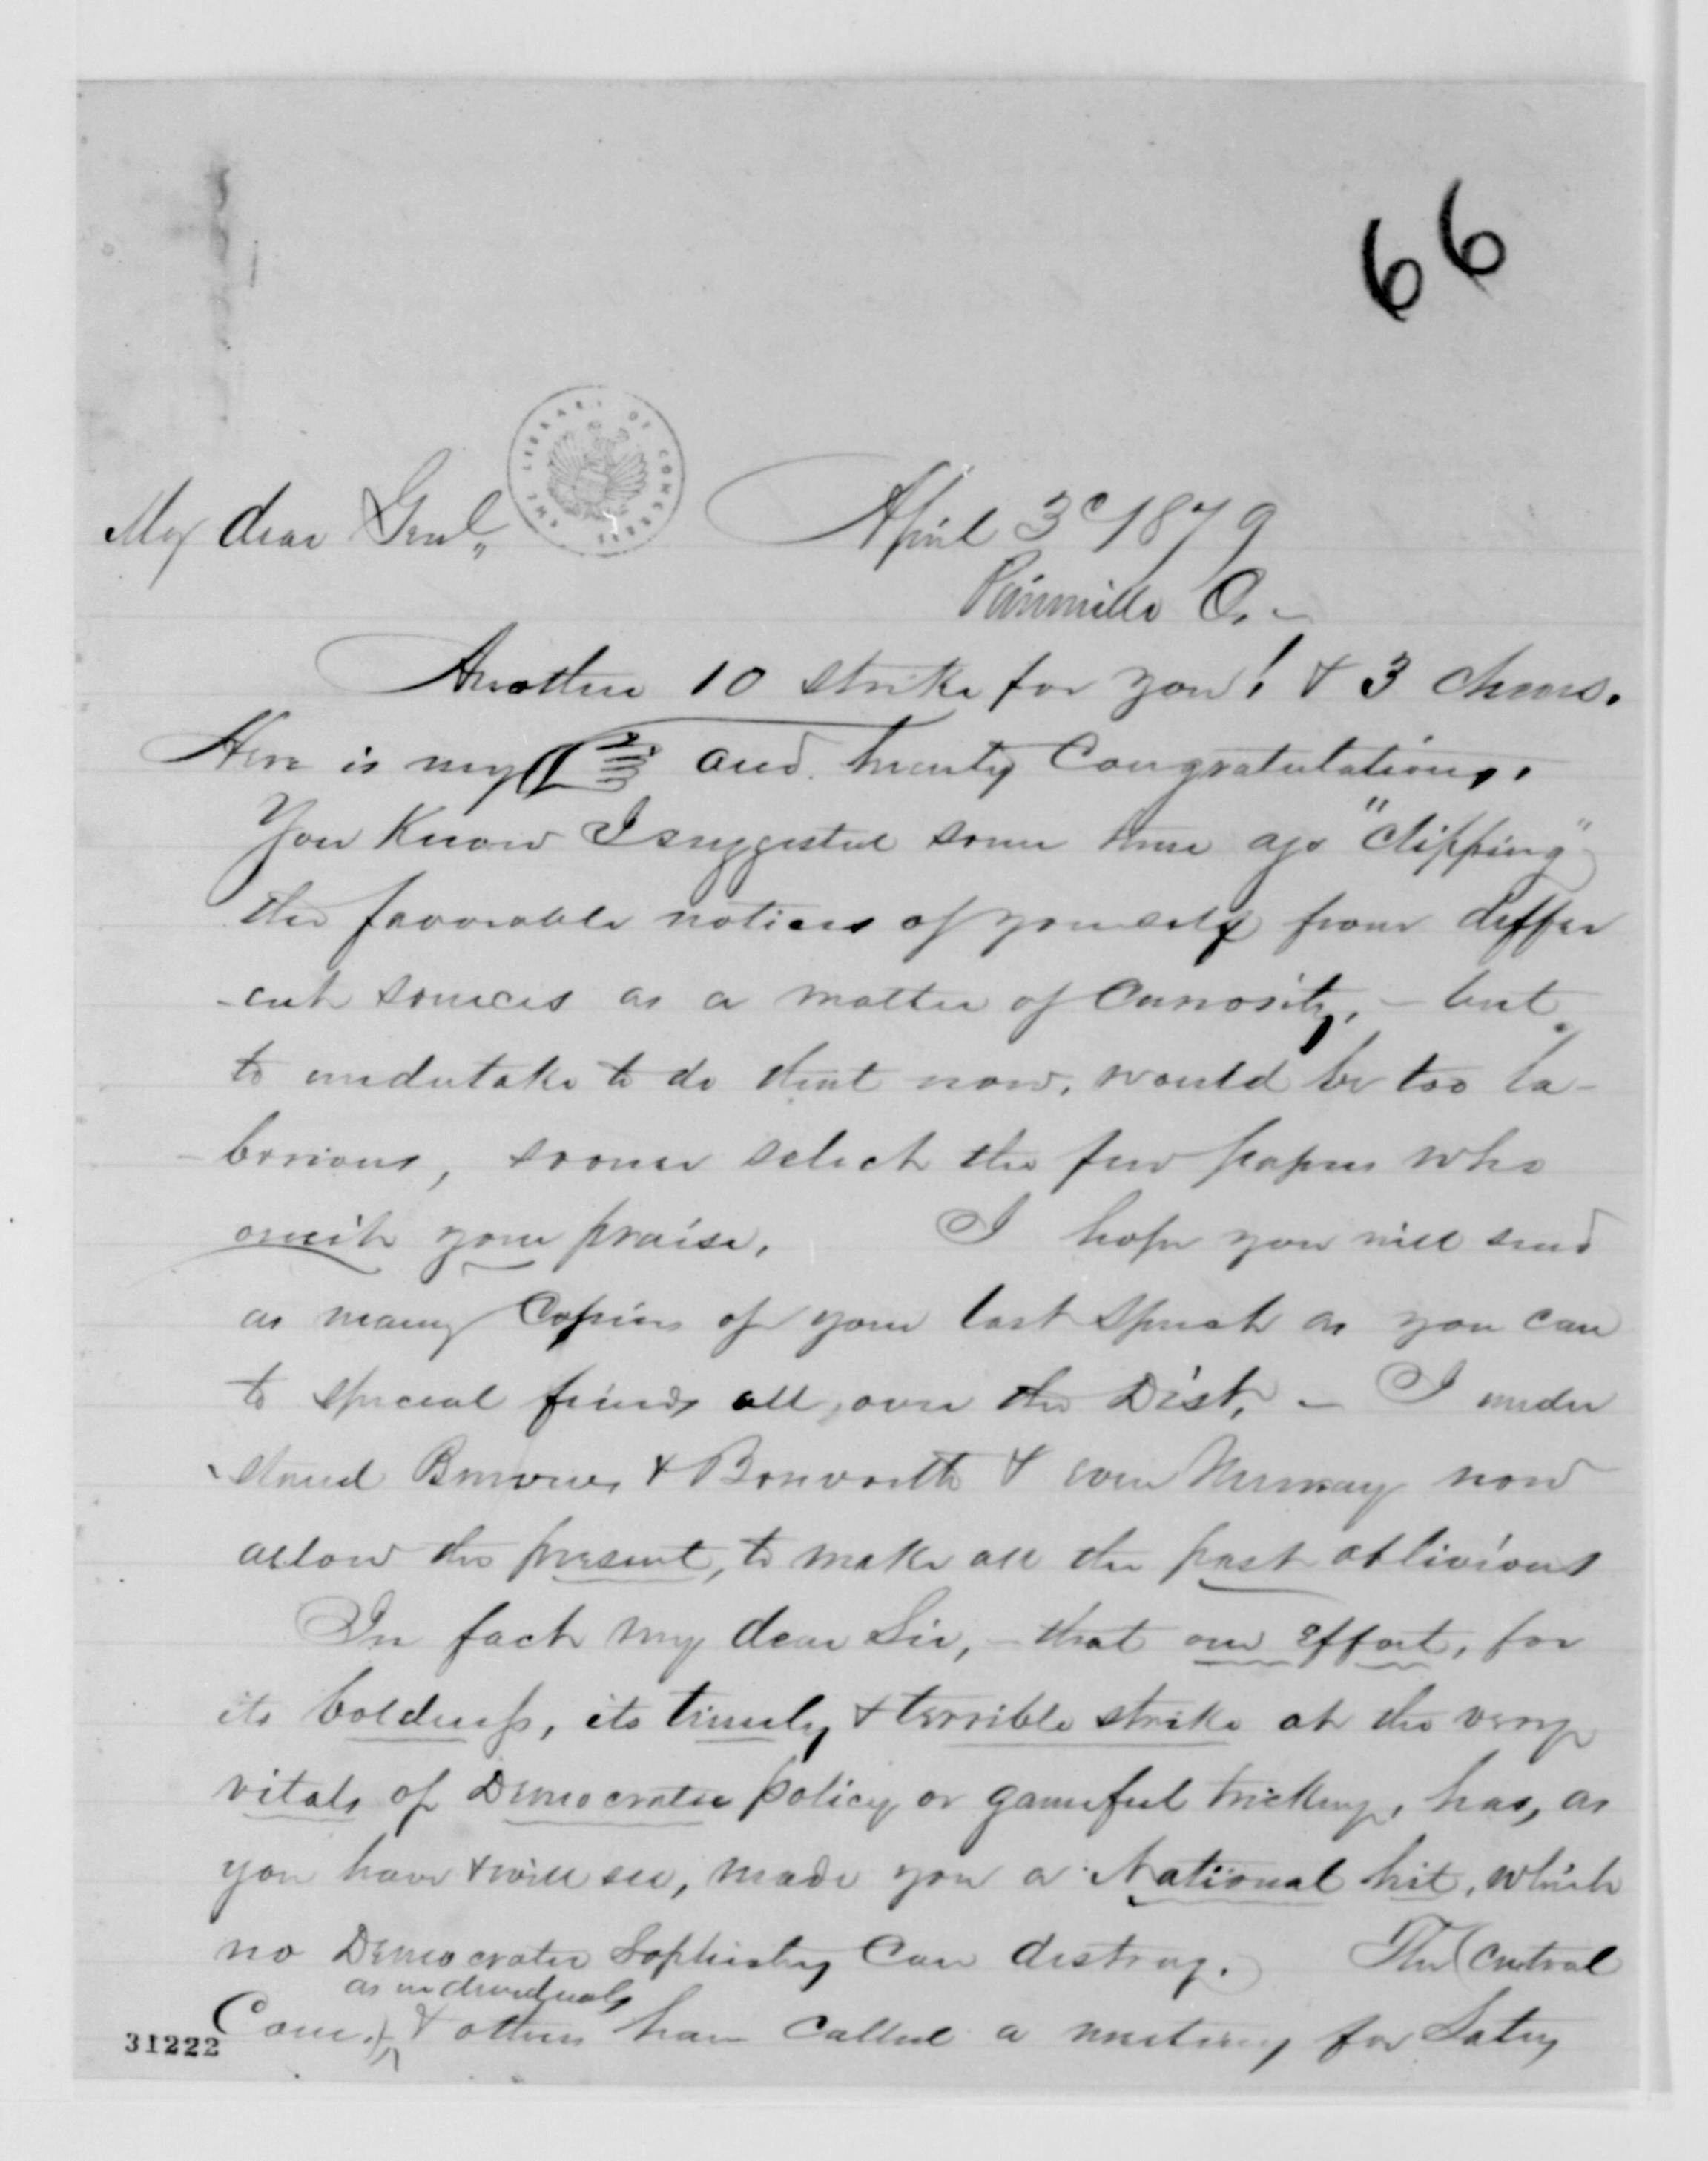 66
THE LIBRARY OF CONGRESS
My dear Genl,,
April 3d 1879
Painesville O. –
Another 10 strike for you! & 3 cheers.
Here is my and hearty Congratulations.
You Know I suggested some time ago "clipping"
the favorable notices of yourself from differ
-ent sources as a matter of Curiosity, – but
to undertake to do that now, would be too la-
-borious, sooner select the few papers who
omit your praise. I hope you will send
as many Copies of your last speech as you can
to special friends all over the Dist, – I under
-stand & Bosworth & even Murray now
allow the present, to make all the past oblivious
In fact my dear Sir, – that one effort, for
its boldness, its timely & terrible strike at the very
vitals of Democratic policy or trickery, has, as
you have & will see, made you a National hit, which
no Democratic Sophistry Can destroy. The (Central
as individuals
Com.) & others have Called a meeting for Saty
31222